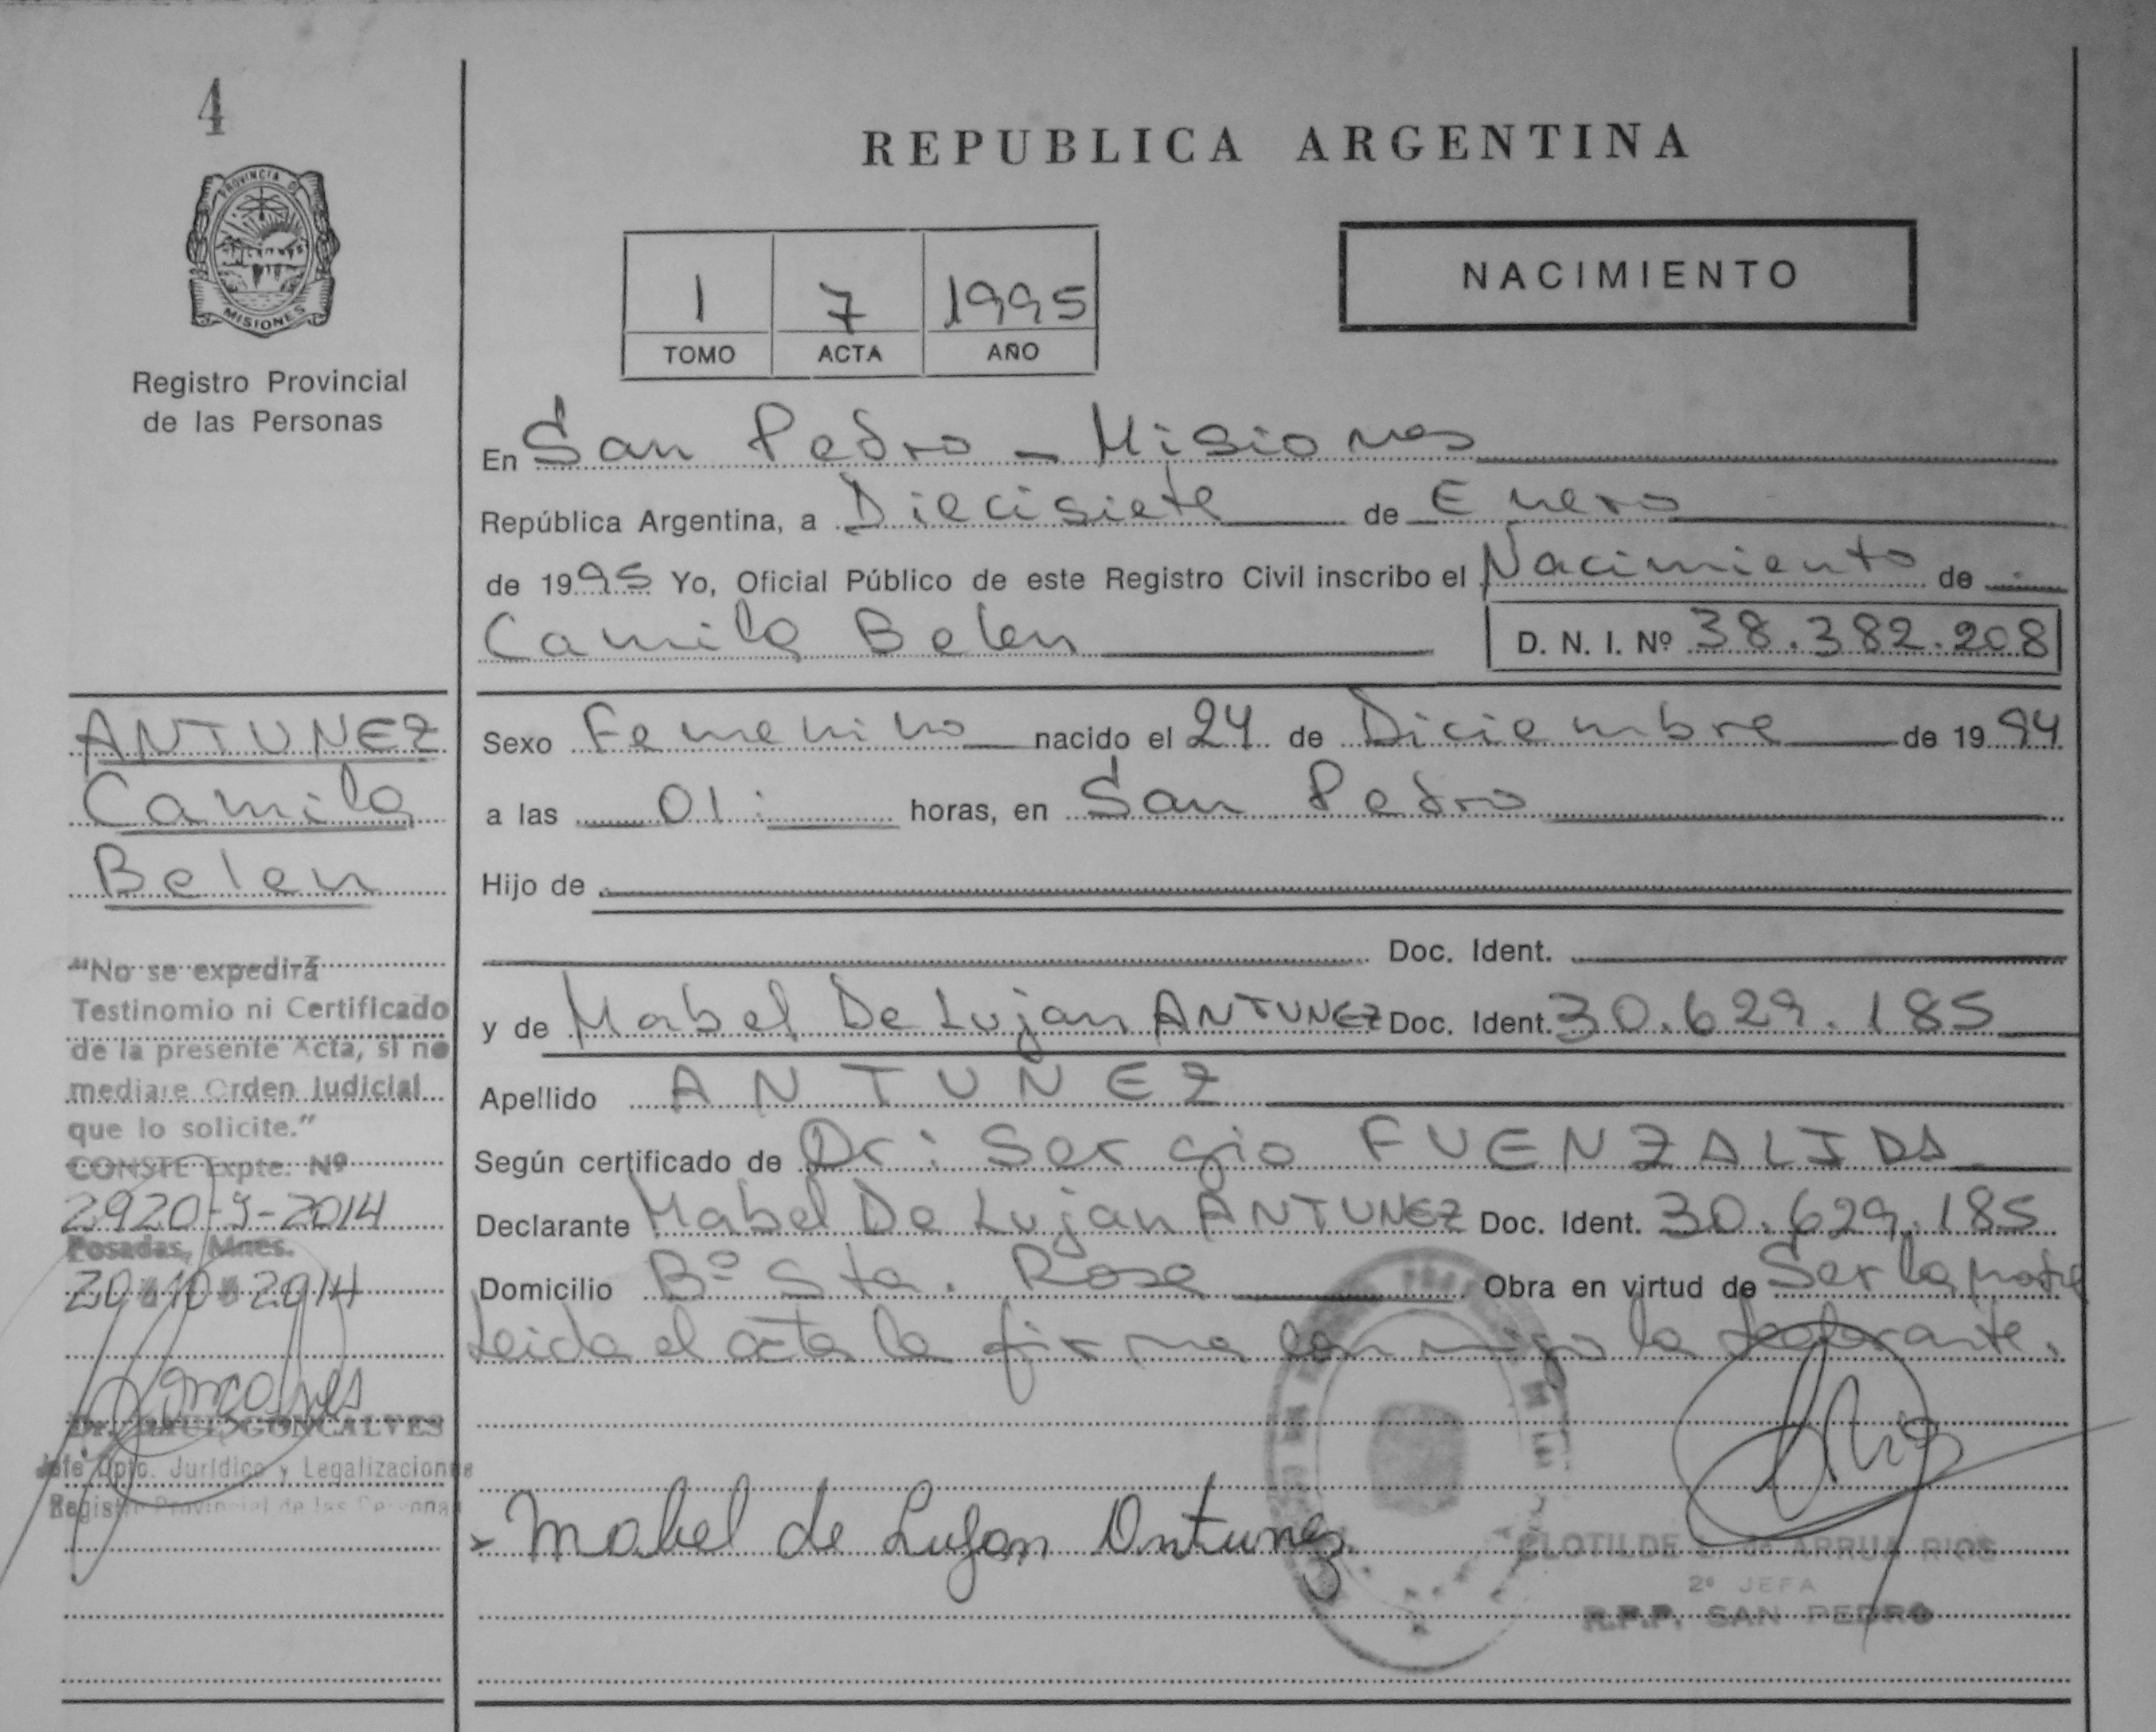 4
PROVINCIA DE
MISIONES
Registro Provincial
de las Personas
REPUBLICA ARGENTINA
1 7 1995
TOMO ACTA AÑO
NACIMIENTO
En San Pedro - Misiones
República Argentina, a Diecisiete de Enero
de 1995 Yo, Oficial Público de este Registro Civil inscribo el Nacimiento de
Camila Belen D. N. I. Nº 38.382.208
Sexo Femenino nacido el 24 de Diciembre de 1994
a las 01: horas, en San Pedro
Hijo de
Doc. Ident.
y de Mabel De Lujan ANTUNEZ Doc. Ident. 30.629.185
Apellido ANTUNEZ
Según certificado de Dr: Sergio FUENZALIDA
Declarante Mabel De Lujan ANTUNEZ Doc. Ident. 30.629.185
Domicilio Bº Sta. Rosa Obra en virtud de Ser la madre
Leida el acta la firma conmigo la declarante.
Mabel de Lujan Antunez
CLOTILDE ARRUA RIOS
2º JEFA
R.P.P. SAN PEDRO
ANTUNEZ
Camila
Belen
"No se expedirá
Testinomio ni Certificado
de la presente Acta, si no
mediare Orden Judicial
que lo solicite."
CONSTE Expte. Nº
2920-9-2014
Posadas, Mnes.
20 10 2014
Goncalves
Dr. GONCALVES
Jefe Dpto. Jurídico y Legalizaciones
Registro Provincial de las Personas